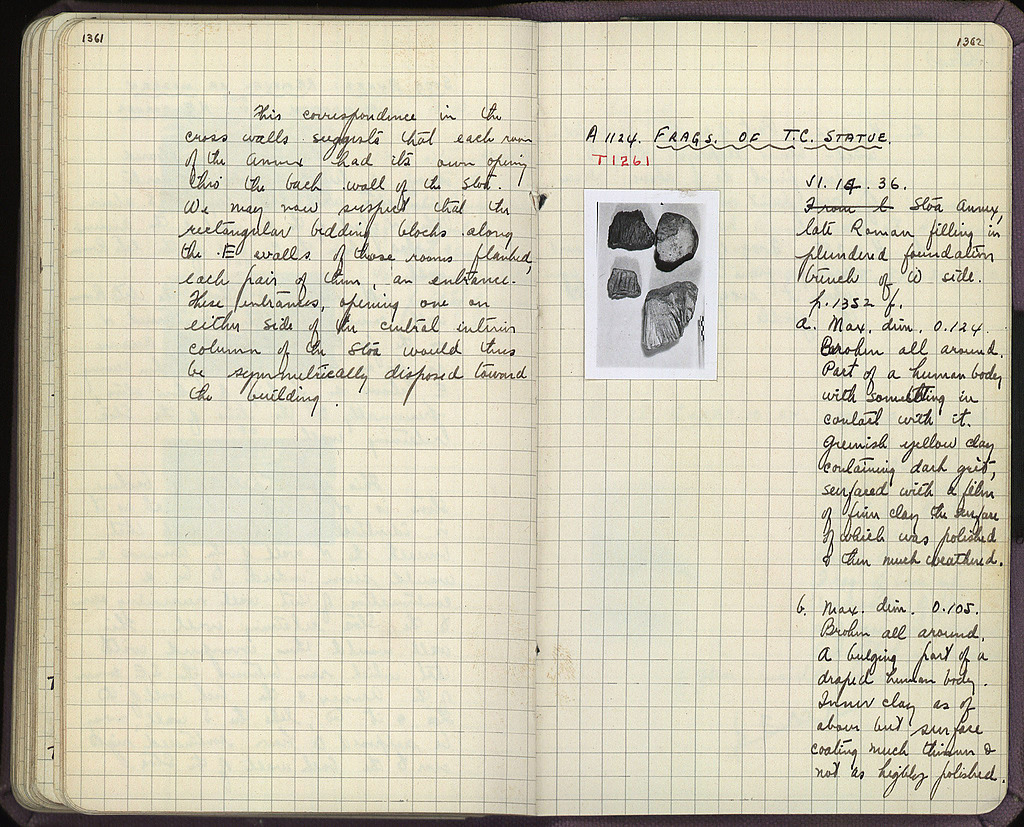 1361
This correspondence in the
cross walls suggests that each room
of the annex had its own opening
thro the back wall of the Stoa.
We may now suspect that the
rectangular bedding blocks along
the E walls of those rooms flanked,
each pair of them, an entrance.
These entrances, opening one on
either side of the central interior
column of the Stoa would thus
be symmetrically disposed toward
the building.
1362
A 1124. FRAGS. OF T.C. STATUE.
T1261
VI. 14. 36.
From b Stoa Annex,
late Roman filling in
plundered foundation
trench of W side.
p. 1352 f.
a. Max. dim. 0.124.
Broken all around.
Part of a human body
with something in
contact with it.
Greenish yellow clay
containing dark grit,
surfaced with a film
of finer clay the surface
of which was polished
& then much weathered.
b. Max. dim. 0.105.
Broken all around.
A bulging part of a
draped human body.
Inner clay as of
above but surface
coating much thinner &
not as highly polished.